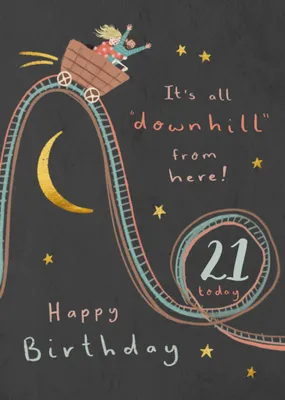 It's all
"downhill"
from
here!
21
today
Happy
Birthday